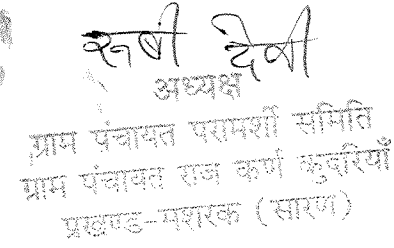 रूबी देवी
अध्यक्ष
ग्राम पंचायत परामर्शी समिति
ग्राम पंचायत राज कर्ण कुदरियाँ
प्रखण्ड-मशरक (सारण)